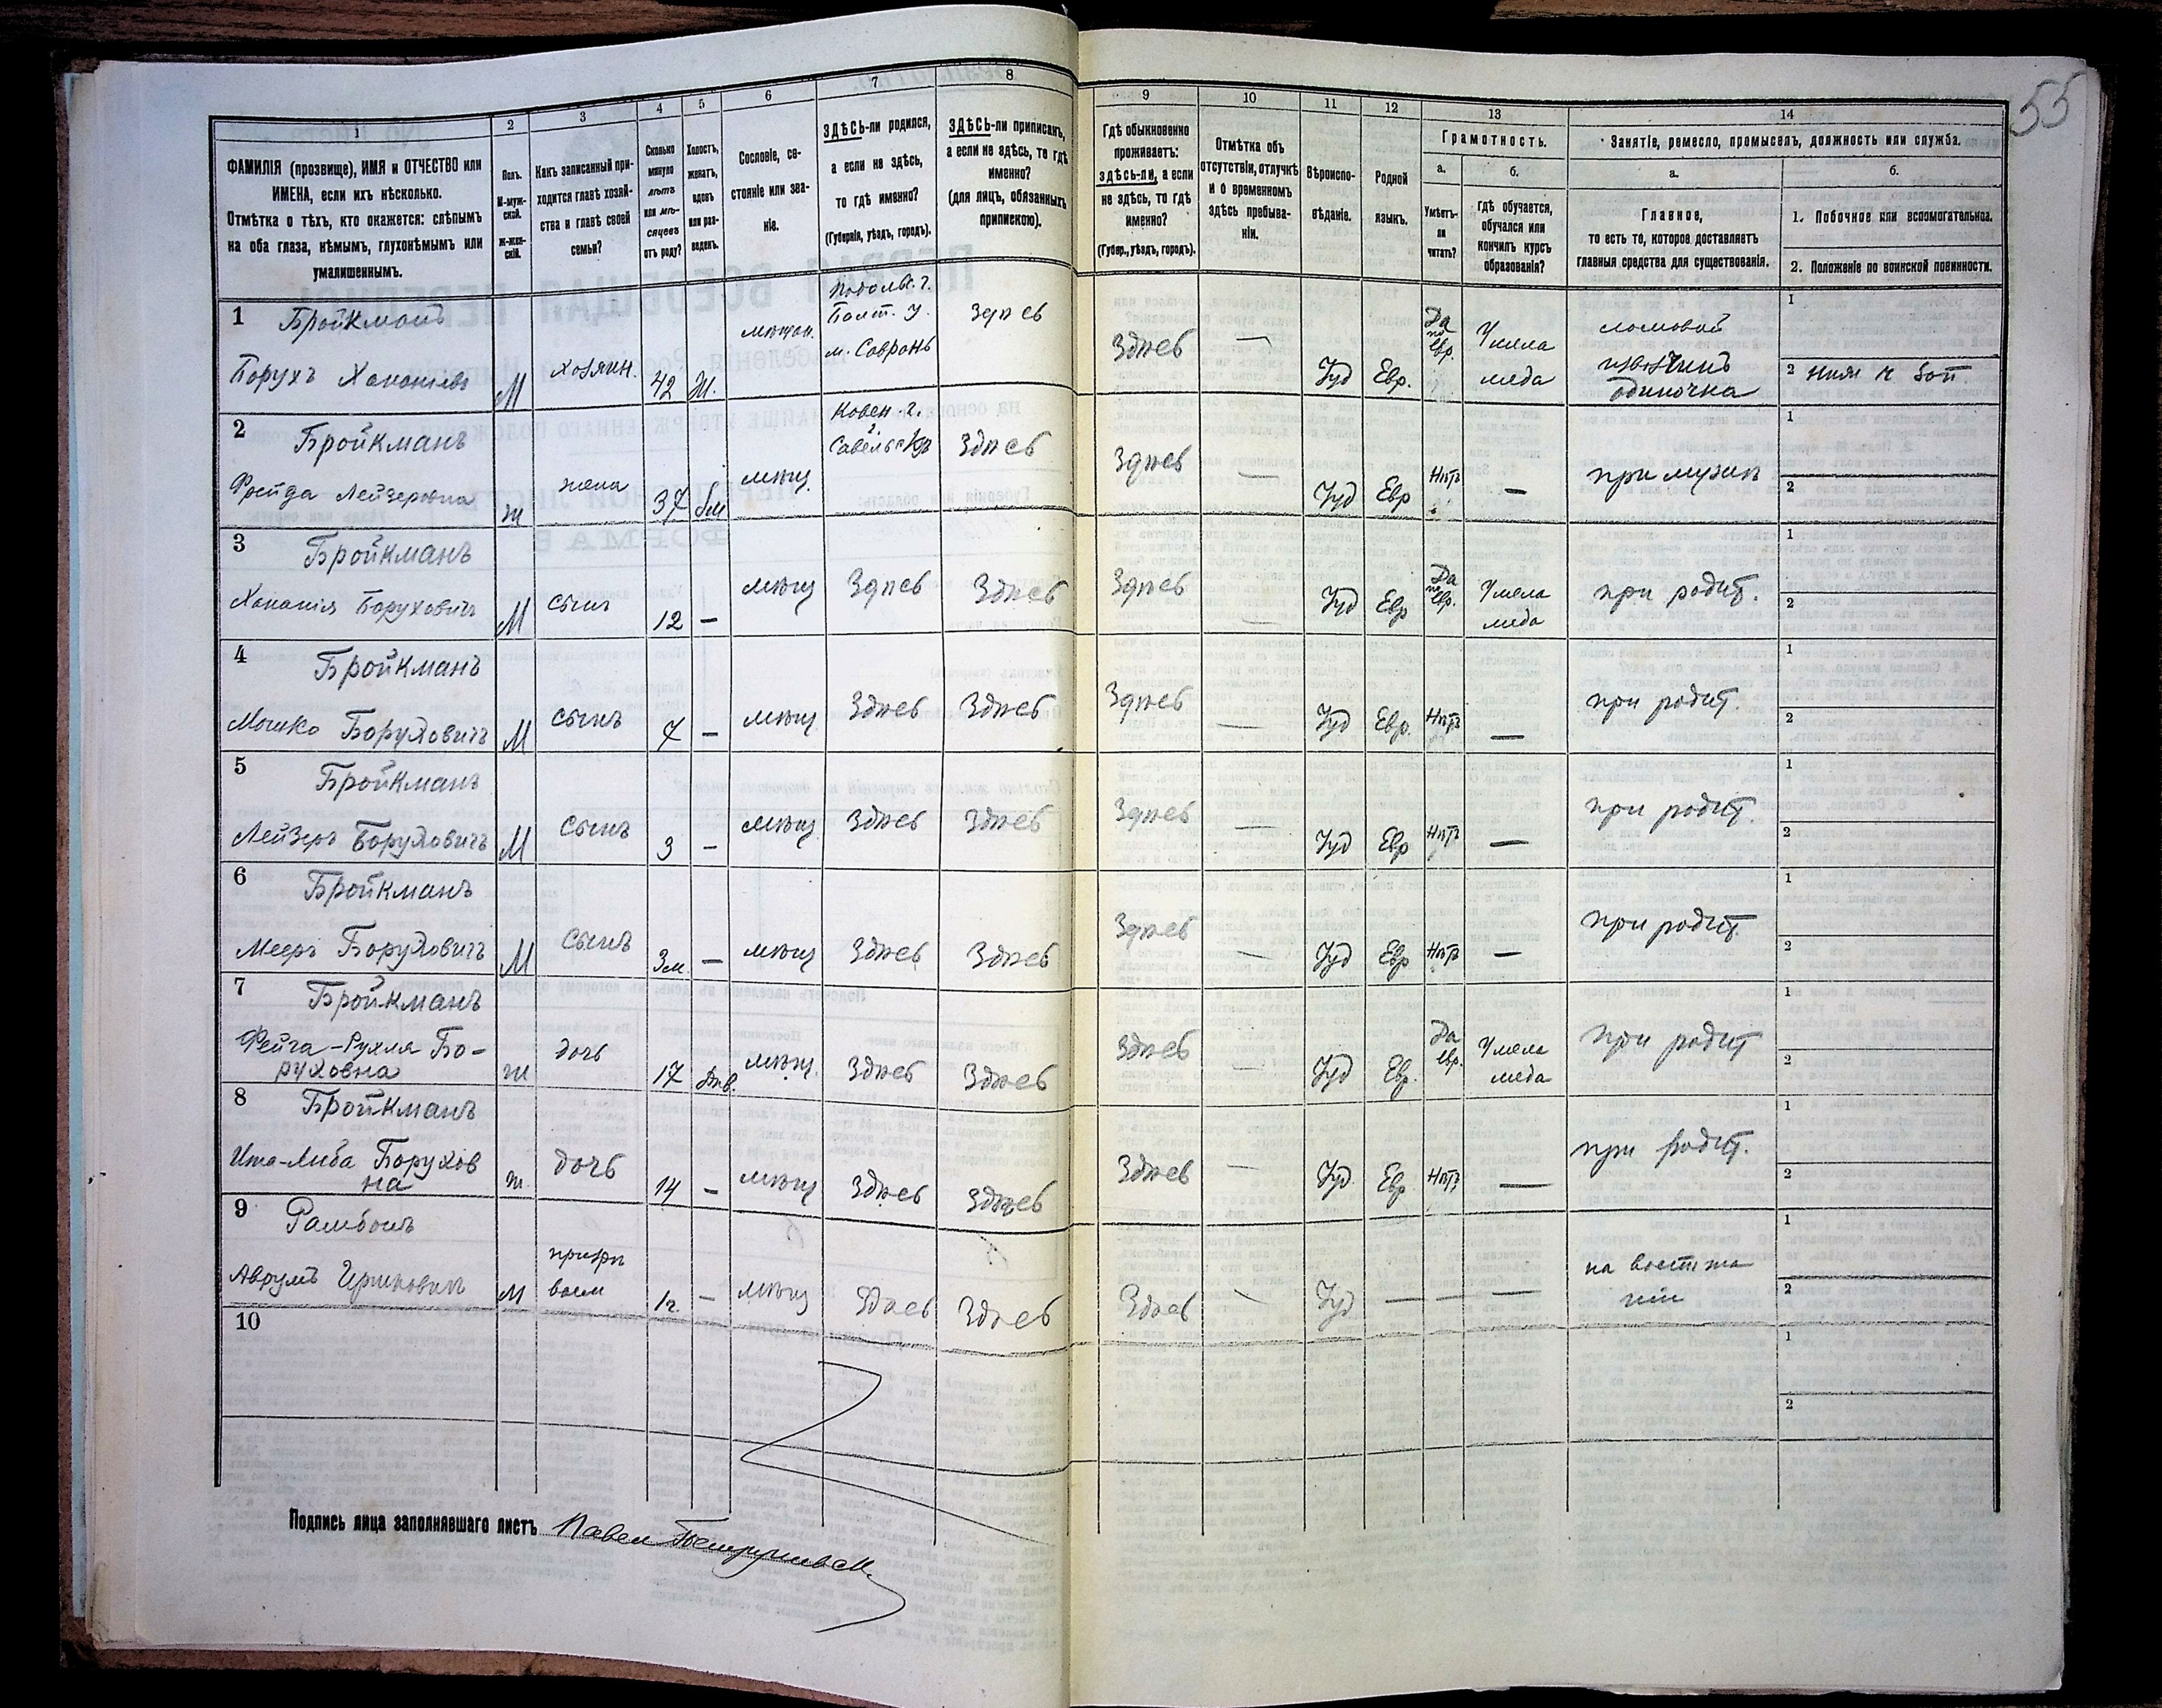 55
1
2
3
4
5
6
7
8
9
10
11
12
13
14
ФАМИЛІЯ (прозвище), ИМЯ и ОТЧЕСТВО или
ИМЕНА, если ихъ нѣсколько.
Отмѣтка о тѣхъ, кто окажется: слѣпымъ
на оба глаза, нѣмымъ, глухонѣмымъ или
умалишеннымъ.
Полъ.
М-муж-
ской.
Ж-жен-
скій.
Какъ записанный при-
ходится главѣ хозяй-
ства и главѣ своей
семьи?
Сколько
минуло
лѣтъ
или мѣ-
сяцевъ
отъ роду?
Холостъ,
женатъ,
вдовъ
или раз-
веденъ.
Сословіе, со-
стояніе или зва-
ніе.
ЗДѢСЬ-ли родился,
а если не здѣсь,
то гдѣ именно?
(Губернія, уѣздъ, городъ).
ЗДѢСЬ-ли приписанъ,
а если не здѣсь, то гдѣ
именно?
(для лицъ, обязанныхъ
припискою).
Гдѣ обыкновенно
проживаетъ:
здѣсь-ли, а если
не здѣсь, то гдѣ
именно?
(Губер., уѣздъ, городъ).
Отмѣтка объ
отсутствіи, отлучкѣ
и о временномъ
здѣсь пребыва-
ніи.
Вѣроиспо-
вѣданіе.
Родной
языкъ.
Грамотность.
а.
Умѣетъ-
ли
читать?
б.
Гдѣ обучается,
обучался или
кончилъ курсъ
образованія?
Занятіе, ремесло, промыселъ, должность или служба.
а.
Главное,
то есть то, которое доставляетъ
главныя средства для существованія.
б.
1. Побочное или вспомогательное.
2. Положеніе по воинской повинности.
1 Бройкманъ
Борухъ
М
хозяин.
42
Ж.
мѣщан.
Подольс. г.
Балт. у.
м. Саврань
Здѣсь
Здѣсь
—
Іуд
Евр.
Да
по
евр.
У мела
меда
ломовой
извозчикъ
одиночка
1
2
2 Бройкманъ
Фрейда Лейзеровна
ж
жена
37
зам
мѣщ.
Ковен. г.
Здѣсь
Здѣсь
—
Іуд
Евр
Нѣтъ
—
при мужѣ
1
2
3 Бройкманъ
Хананія Боруховичъ
М
сынъ
12
—
мѣщ
Здѣсь
Здѣсь
Здѣсь
—
Іуд
Евр
Да
по
евр.
У мела
меда
при родит.
1
2
4 Бройкманъ
Мошко Боруховичъ
М
сынъ
7
—
мѣщ
Здѣсь
Здѣсь
Здѣсь
—
Іуд
Евр.
Нѣтъ
—
при родит.
1
2
5 Бройкманъ
Лейзеръ Боруховичъ
М
сынъ
3
—
мѣщ
Здѣсь
Здѣсь
Здѣсь
—
Іуд
Евр
Нѣтъ
—
при родит.
1
2
6 Бройкманъ
Мееръ Боруховичъ
М
сынъ
3м.
—
мѣщ
Здѣсь
Здѣсь
Здѣсь
—
Іуд
Евр
Нѣтъ
—
при родит.
1
2
7 Бройкманъ
Фейга-Рухля Бо-
руховна
ж
дочь
17
дѣв.
мѣщ.
Здѣсь
Здѣсь
Здѣсь
—
Іуд
Евр.
Да
евр.
У мела
меда
при родит
1
2
8 Бройкманъ
Ита-Либа Борухов
на
ж.
дочь
14
—
мѣщ
Здѣсь
Здѣсь
Здѣсь
—
Іуд
Евр
Нѣтъ
—
при родит.
1
2
9
Аврумъ
М
1г.
—
мѣщ
Здѣсь
Здѣсь
Здѣсь
—
Іуд
—
—
—
на воспита
ніи
1
2
10
1
2
Подпись лица заполнявшаго листъ Павел